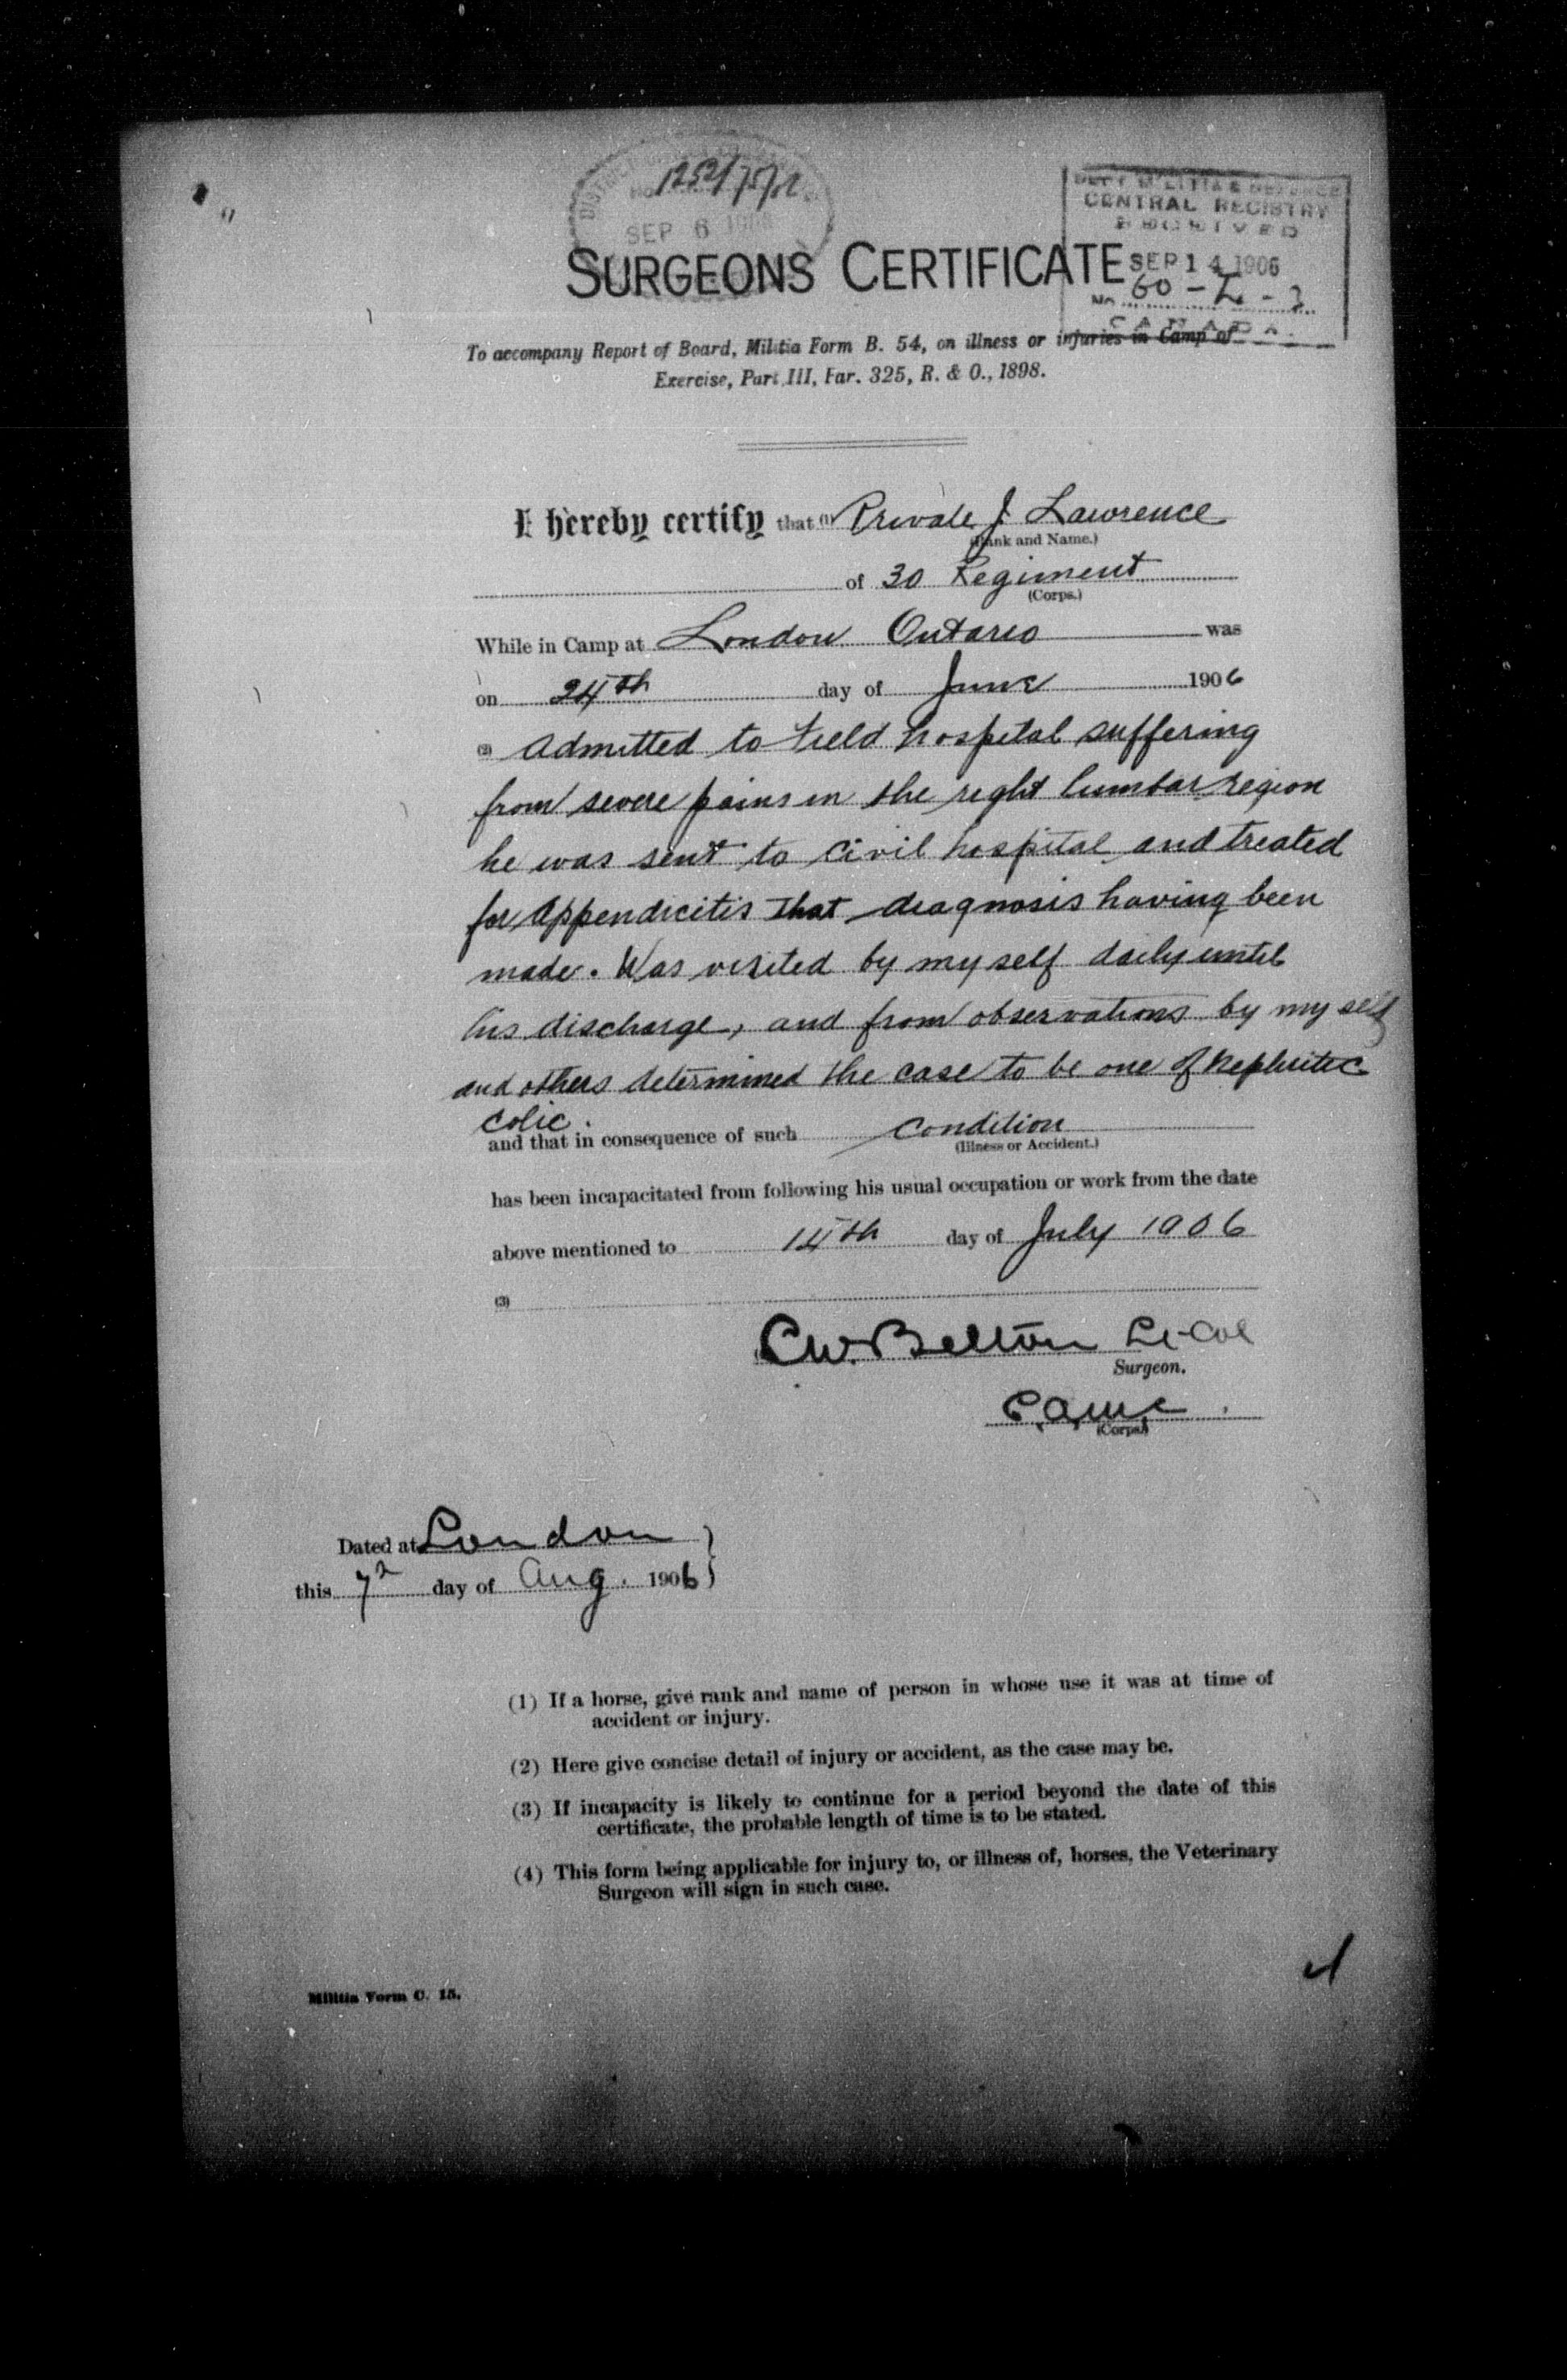 SEP 6
DEPT MILITIA & DEFENCE
CENTRAL REGISTRY
RECEIVED
SEP 14 1906
No. 60 - L - 3
CANADA.
SURGEONS CERTIFICATE
To accompany Report of Board, Militia Form B. 54, on illness or injuries in Camp of
Exercise, Part III, Par. 325, R. & O., 1898.
I hereby certify that (1) Private J. Lawrence
(Rank and Name.)
of 30 Regiment
(Corps.)
While in Camp at London Ontario was
on 24th day of June 1906
(2) admitted to field hospital suffering
from severe pains in the right lumbar region
he was sent to civil hospital and treated
for appendicitis that diagnosis having been
made. Was visited by my self daily until
his discharge, and from observations by my self
and others determined the case to be one of nephritic
colic.
and that in consequence of such condition
(Illness or Accident.)
has been incapacitated from following his usual occupation or work from the date
above mentioned to 14th day of July 1906
(3)
C.W. Belton Lt-Col
Surgeon.
P.A.M.C.
(Corps.)
Dated at London
this 7 day of Aug. 1906
(1) If a horse, give rank and name of person in whose use it was at time of
accident or injury.
(2) Here give concise detail of injury or accident, as the case may be.
(3) If incapacity is likely to continue for a period beyond the date of this
certificate, the probable length of time is to be stated.
(4) This form being applicable for injury to, or illness of, horses, the Veterinary
Surgeon will sign in such case.
Militia Form C. 15.